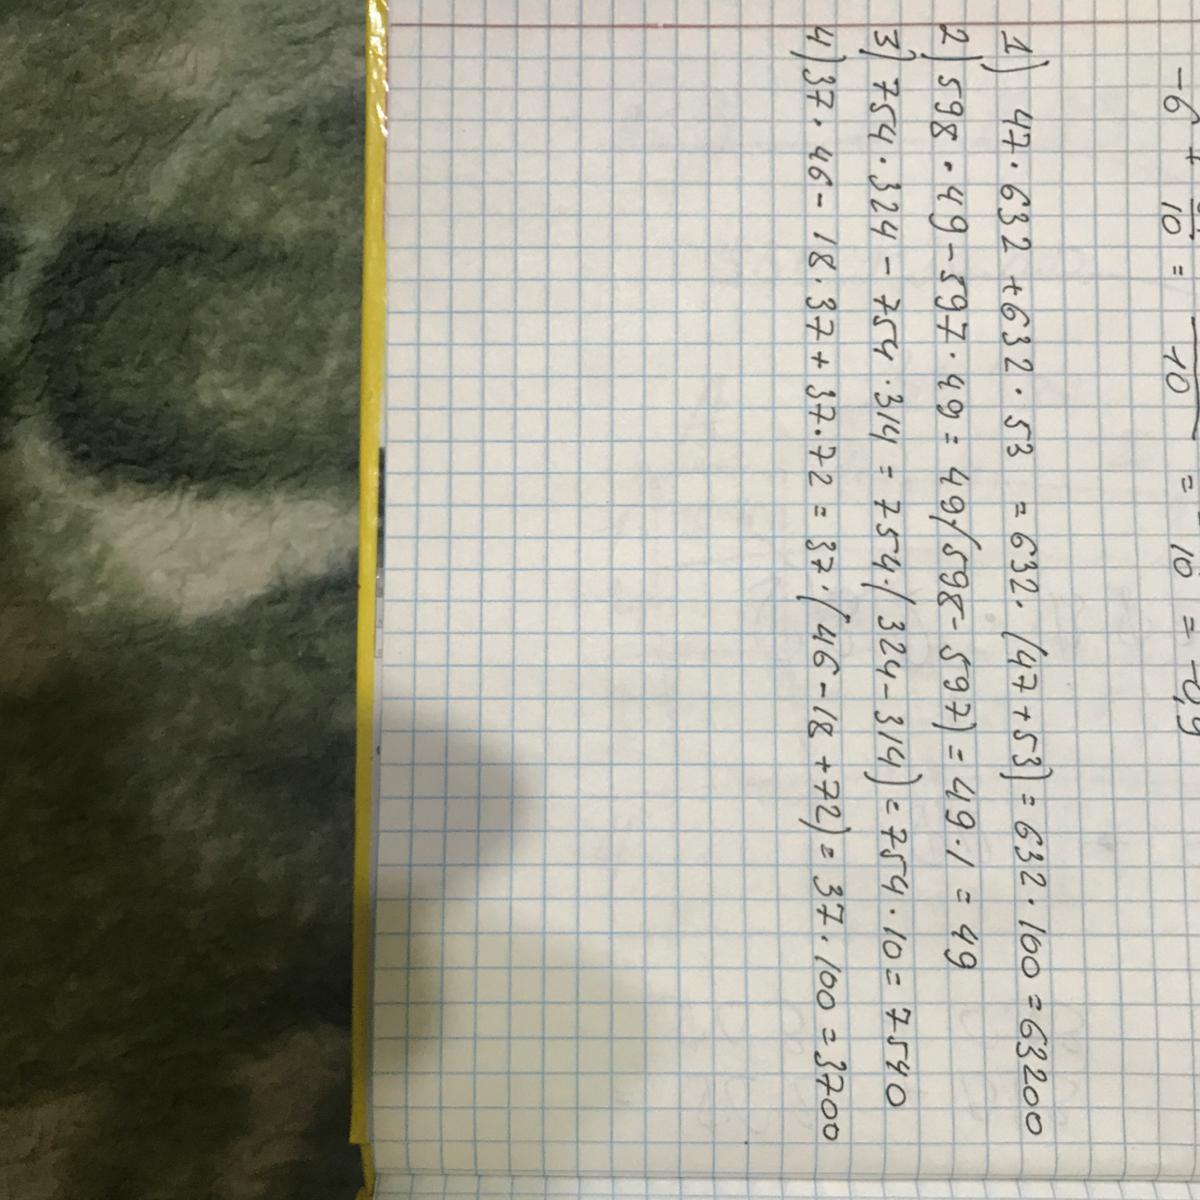 -6 + 10 = 10 = 10 = -0,9
1) 47 · 632 + 632 · 53 = 632 · (47 + 53) = 632 · 100 = 63200
2) 598 · 49 - 597 · 49 = 49 (598 - 597) = 49 · 1 = 49
3) 754 · 324 - 754 · 314 = 754 · (324 - 314) = 754 · 10 = 7540
4) 37 · 46 - 18 · 37 + 37 · 72 = 37 · (46 - 18 + 72) = 37 · 100 = 3700